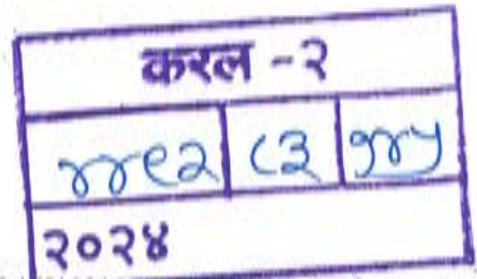 करल -२
४४९२ ८३ १४५
२०२४